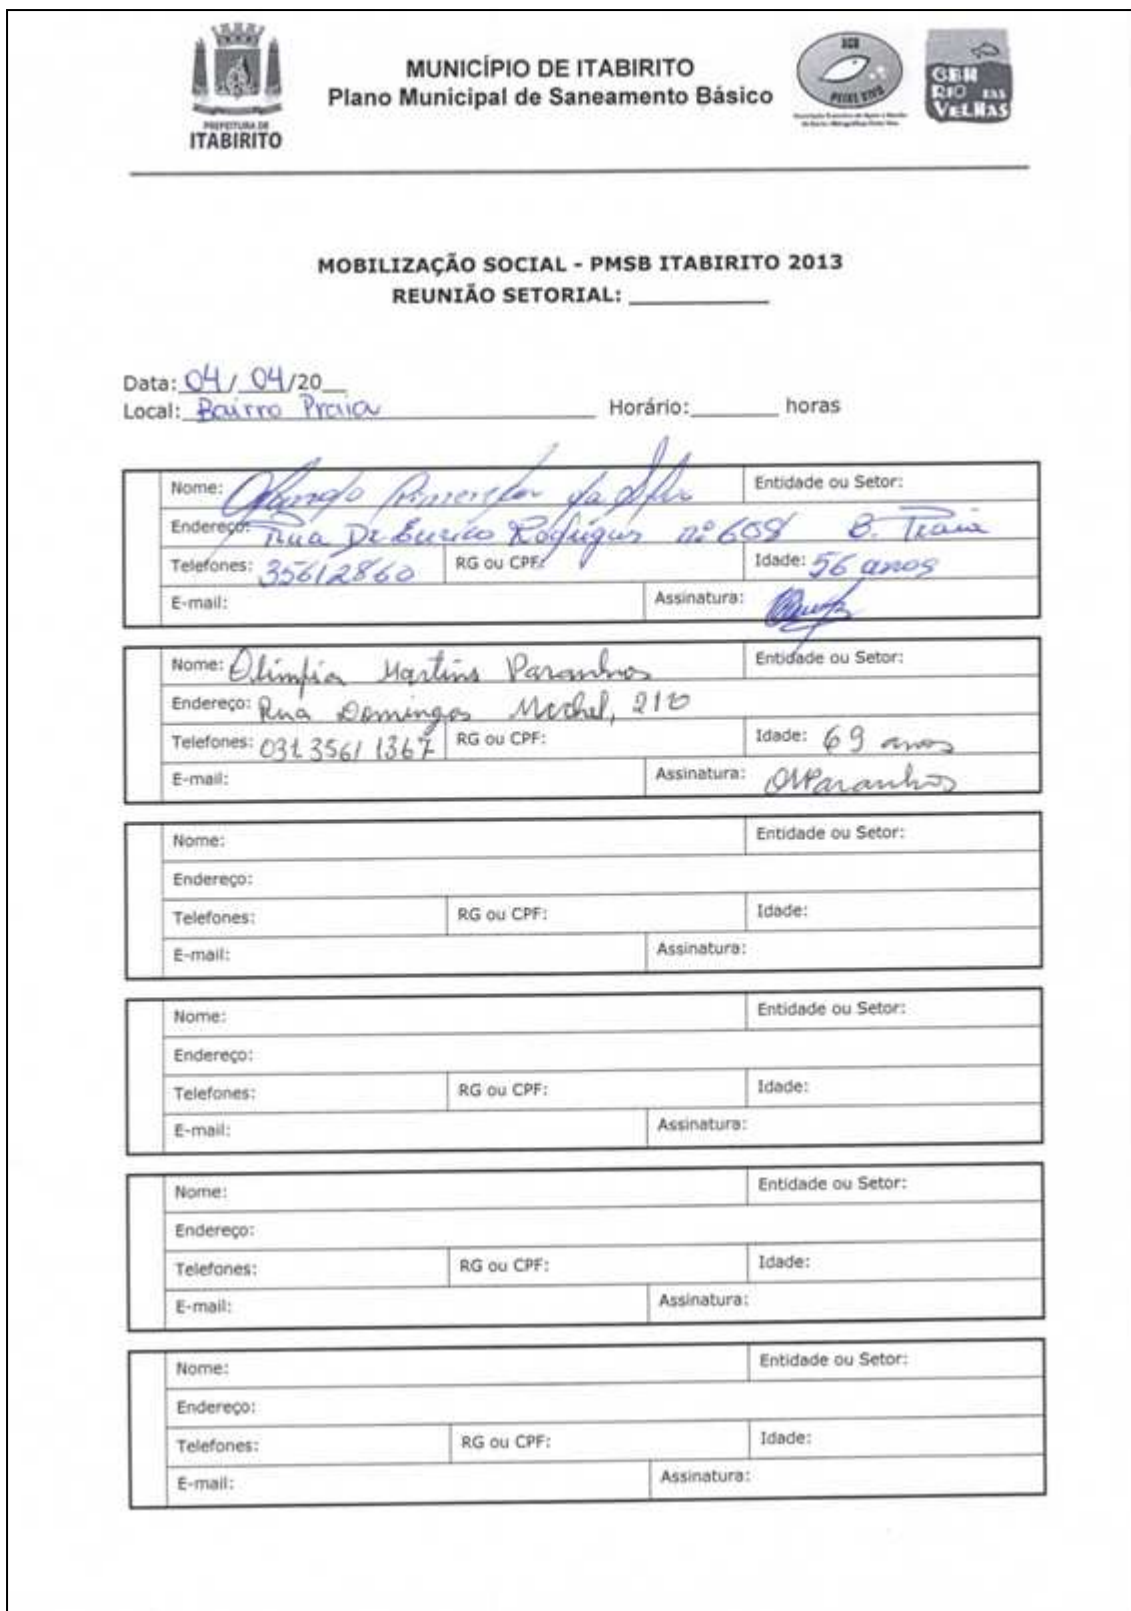 PREFEITURA DE
ITABIRITO
MUNICÍPIO DE ITABIRITO
Plano Municipal de Saneamento Básico
AGB
PEIXE VIVO
CBH
RIO DAS
VELHAS
MOBILIZAÇÃO SOCIAL - PMSB ITABIRITO 2013
REUNIÃO SETORIAL: __________
Data: 04/ 04/20__
Local: Bairro Praia Horário:________ horas
Nome: da Silva Entidade ou Setor:
Endereço: Rua Dr Eurico Rodrigues nº 608 B. Praia
Telefones: 35612860 RG ou CPF: Idade: 56 anos
E-mail: Assinatura:
Nome: Olimpia Martins Paranhos Entidade ou Setor:
Endereço: Rua Domingos Michel, 210
Telefones: 031 3561 1367 RG ou CPF: Idade: 69 anos
E-mail: Assinatura: OMParanhos
Nome: Entidade ou Setor:
Endereço:
Telefones: RG ou CPF: Idade:
E-mail: Assinatura:
Nome: Entidade ou Setor:
Endereço:
Telefones: RG ou CPF: Idade:
E-mail: Assinatura:
Nome: Entidade ou Setor:
Endereço:
Telefones: RG ou CPF: Idade:
E-mail: Assinatura:
Nome: Entidade ou Setor:
Endereço:
Telefones: RG ou CPF: Idade:
E-mail: Assinatura: